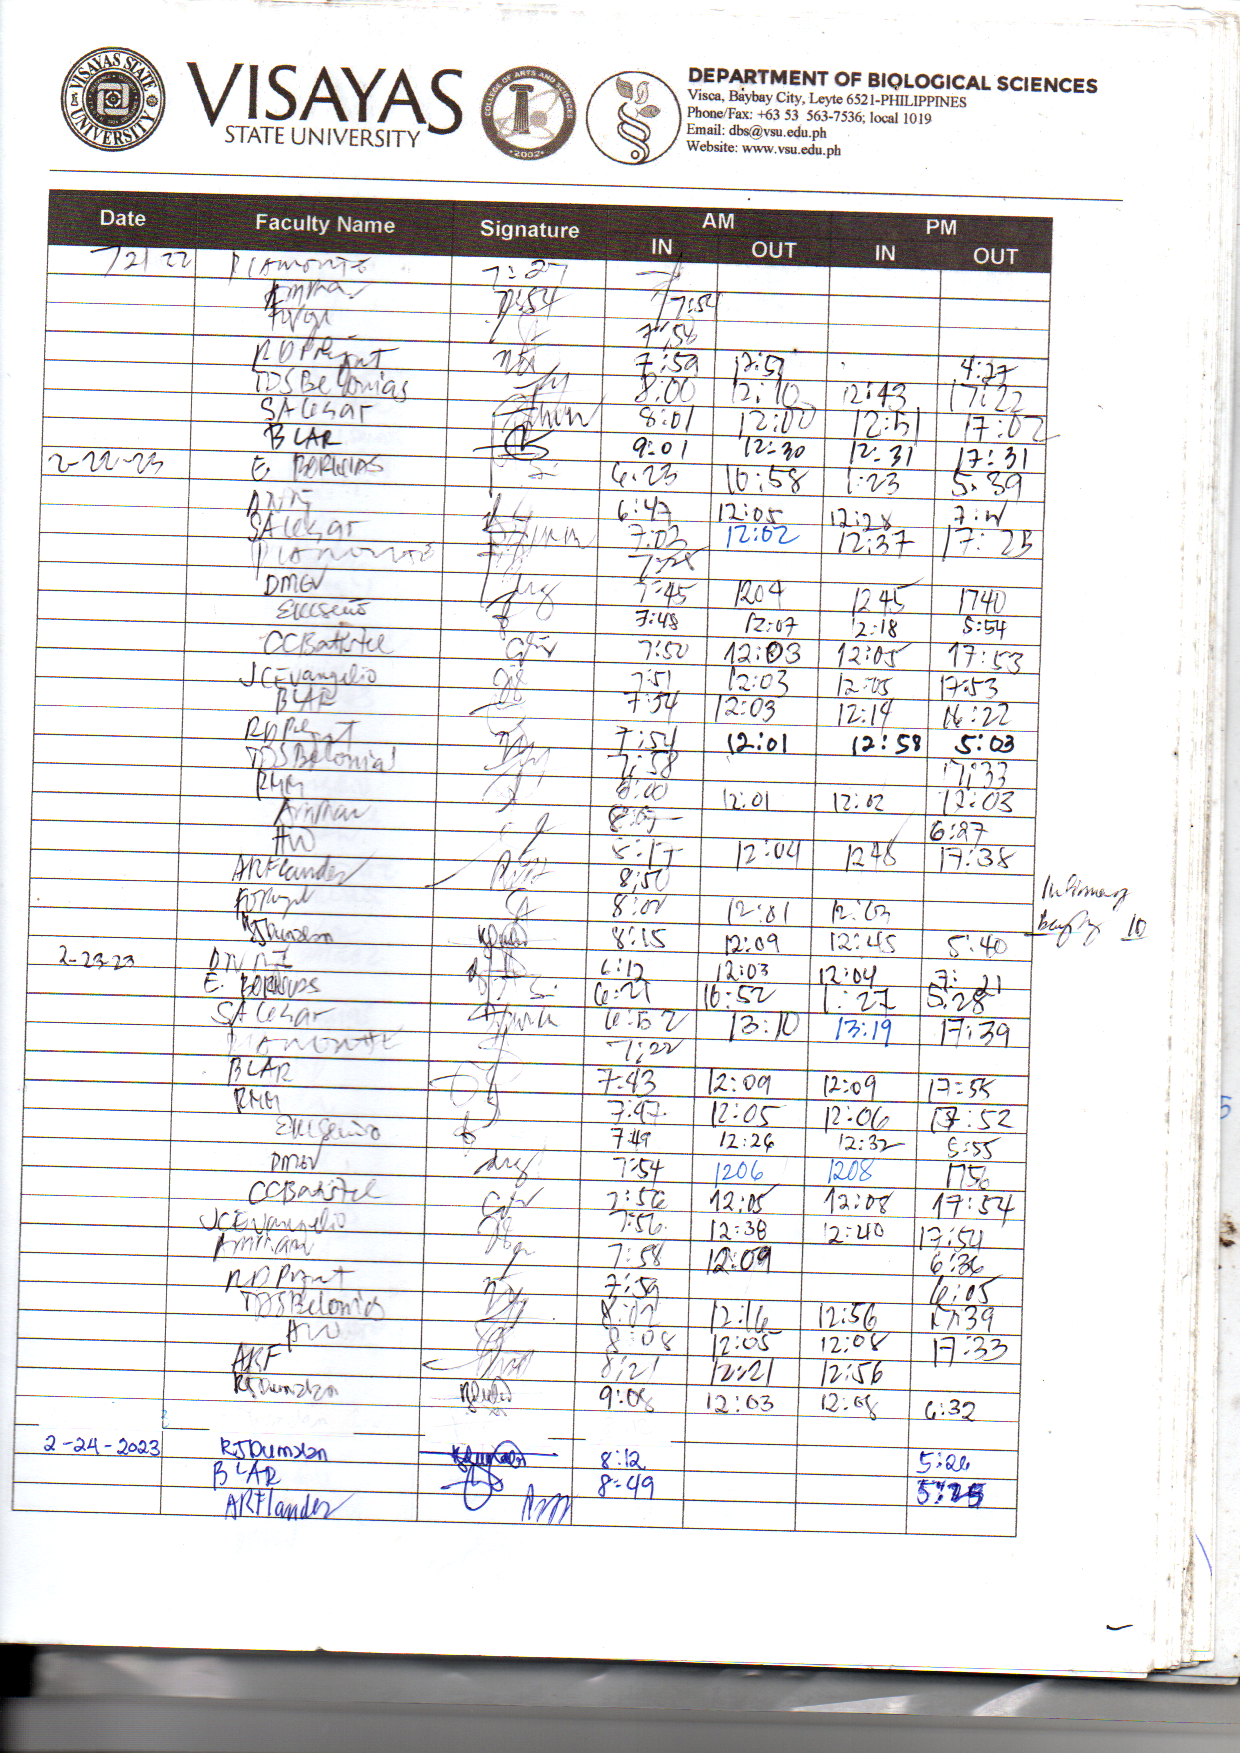 VISAYAS STATE UNIVERSITY
VISAYAS
STATE UNIVERSITY
COLLEGE OF ARTS AND SCIENCES
2002
DEPARTMENT OF BIOLOGICAL SCIENCES
Visca, Baybay City, Leyte 6521-PHILIPPINES
Phone/Fax: +63 53 563-7536; local 1019
Email: dbs@vsu.edu.ph
Website: www.vsu.edu.ph
Date Faculty Name Signature AM PM
IN OUT IN OUT
PIAMONTE 7:27
7:54
7:58
7:59 12:57 4:27
TDSBelonias 8:00 12:10 12:43 17:22
SACesar 8:01 12:00 12:51 17:02
BLAR 9:01 12:30 12:31 17:31
2-22-23 E. BORINAS 6:23 10:58 1:23 5:39
6:47 12:05 12:28
SACesar 7:03 12:02 12:37 17:23
PIAMONTE
DMGV 7:45 1204 1245 1740
7:48 12:07 12:18 5:54
CCBatistel 7:50 12:03 12:05 17:53
JCEvangelio 7:51 12:03 12:05 17:53
BLAR 7:54 12:03 12:14 16:22
7:54 12:01 12:58 5:03
TDSBelonias 7:58 17:33
RMM 8:00 12:01 12:02 17:03
6:27
AW 8:17 12:04 1248 17:38
ARFlander 8:50
8:02 12:01 12:03
RJDumalan 8:15 12:09 12:45 5:40
2-23-23 6:12 12:03 12:04 7:21
E. BORINAS 6:21 10:52 1:27 5:28
SACesar 6:52 13:10 13:19 17:39
PIAMONTE 7:22
BLAR 7:43 12:09 12:09 17:55
RMM 7:47 12:05 12:06 17:52
7:49 12:26 12:32 5:55
DMGV 7:54 1206 1208 1756
CCBatistel 7:56 12:05 12:08 17:54
JCEvangelio 7:56 12:38 12:40 17:54
7:58 12:09 6:36
7:59 6:05
TDSBelonias 8:02 12:16 12:56 17:39
AW 8:08 12:05 12:08 17:33
ARF 8:21 12:21 12:56
RJDumalan 9:08 12:03 12:08 6:32
2-24-2023 RJDumalan 8:12 5:26
BLAR 8:49 5:25
ARFlander